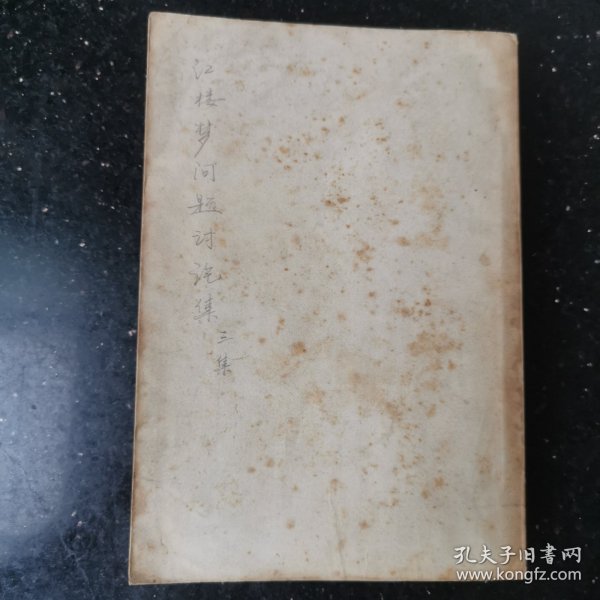 红楼梦问题讨论集
三集
孔夫子旧书网
www.kongfz.com